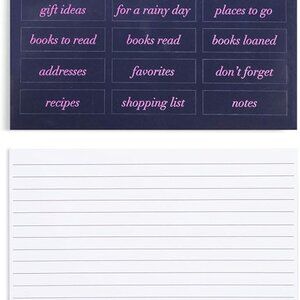 gift ideas for a rainy day places to go
books to read books read books loaned
addresses favorites don't forget
recipes shopping list notes